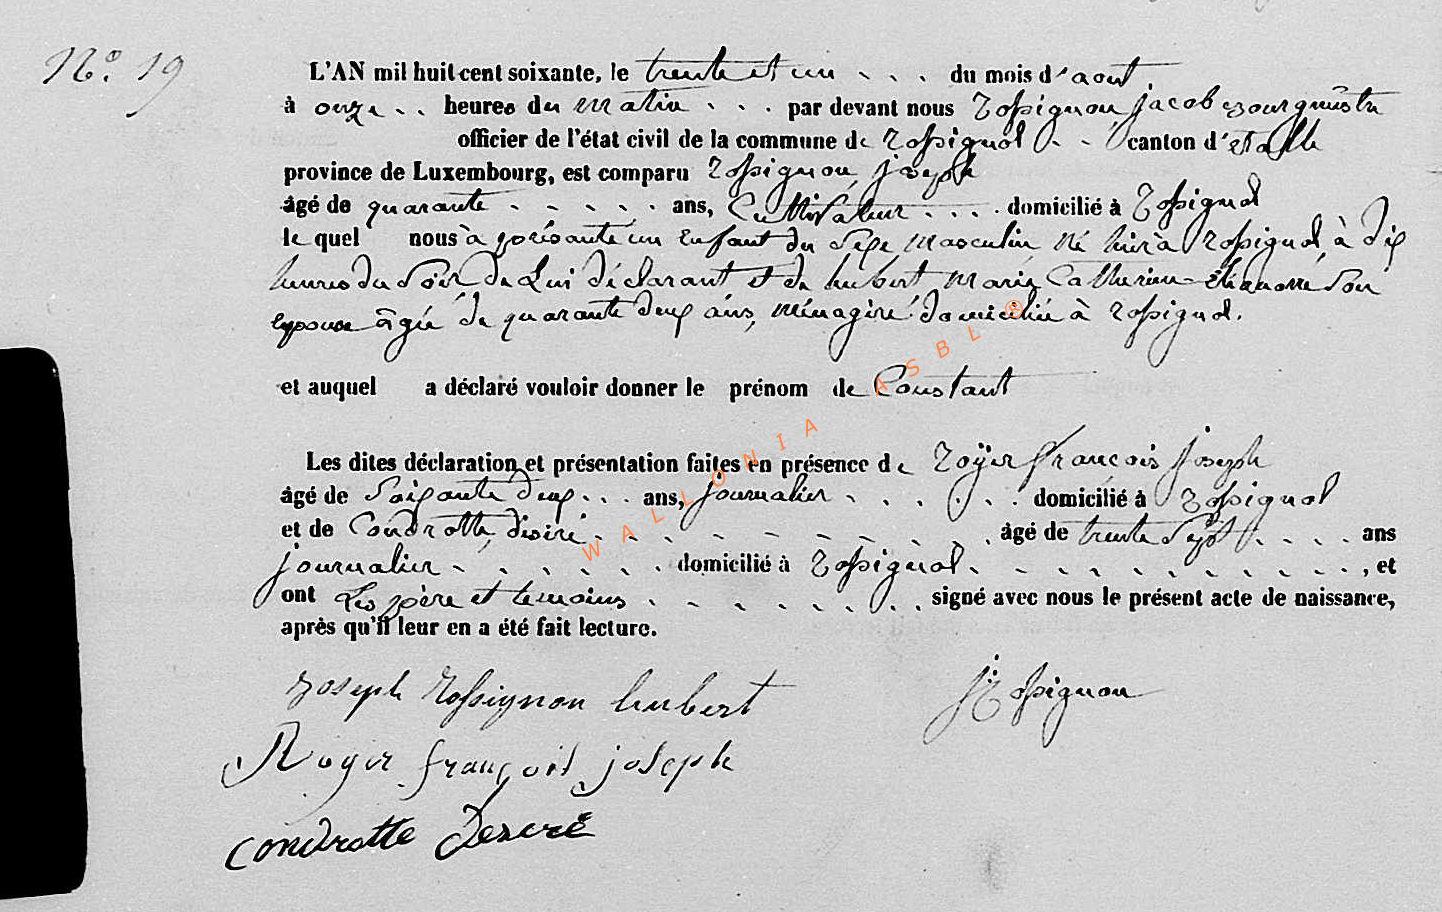 No. 19
L'AN mil huit cent soixante, le trente et un . . . du mois d'aout
à onze . . heures du matin . . . par devant nous Rossignon jacob Bourgmestre
officier de l'état civil de la commune de Rossignol . . canton d'étalle
province de Luxembourg, est comparu Rossignon, joseph
âgé de quarante . . . . . ans, Cultivateur . . . . domicilié à Rossignol
le quel nous à présenté un enfant du sexe masculin né hier à Rossignol à dix
heures du soir de Lui déclarant et de hubert marie Catherine Eléanore son
epouse âgée de quarante deux ans, ménagère domiciliée à Rossignol.
et auquel a déclaré vouloir donner le prénom de Constant
Les dites déclaration et présentation faites en présence de Royer françois joseph
âgé de soixante deux . . . ans, journalier . . . . . . domicilié à Rossignol
et de Condrotte, désiré . . . . . . . . . . . âgé de trente sept . . . . ans
journalier . . . . . . domicilié à Rossignol . . . . . . . . . . . . , et
ont Les père et temoins . . . . . . . . signé avec nous le présent acte de naissance,
après qu'il leur en a été fait lecture.
joseph Rossignon hubert
JRossignon
Royer françois joseph
condrotte Desiré
WALLONIA ASBL ®